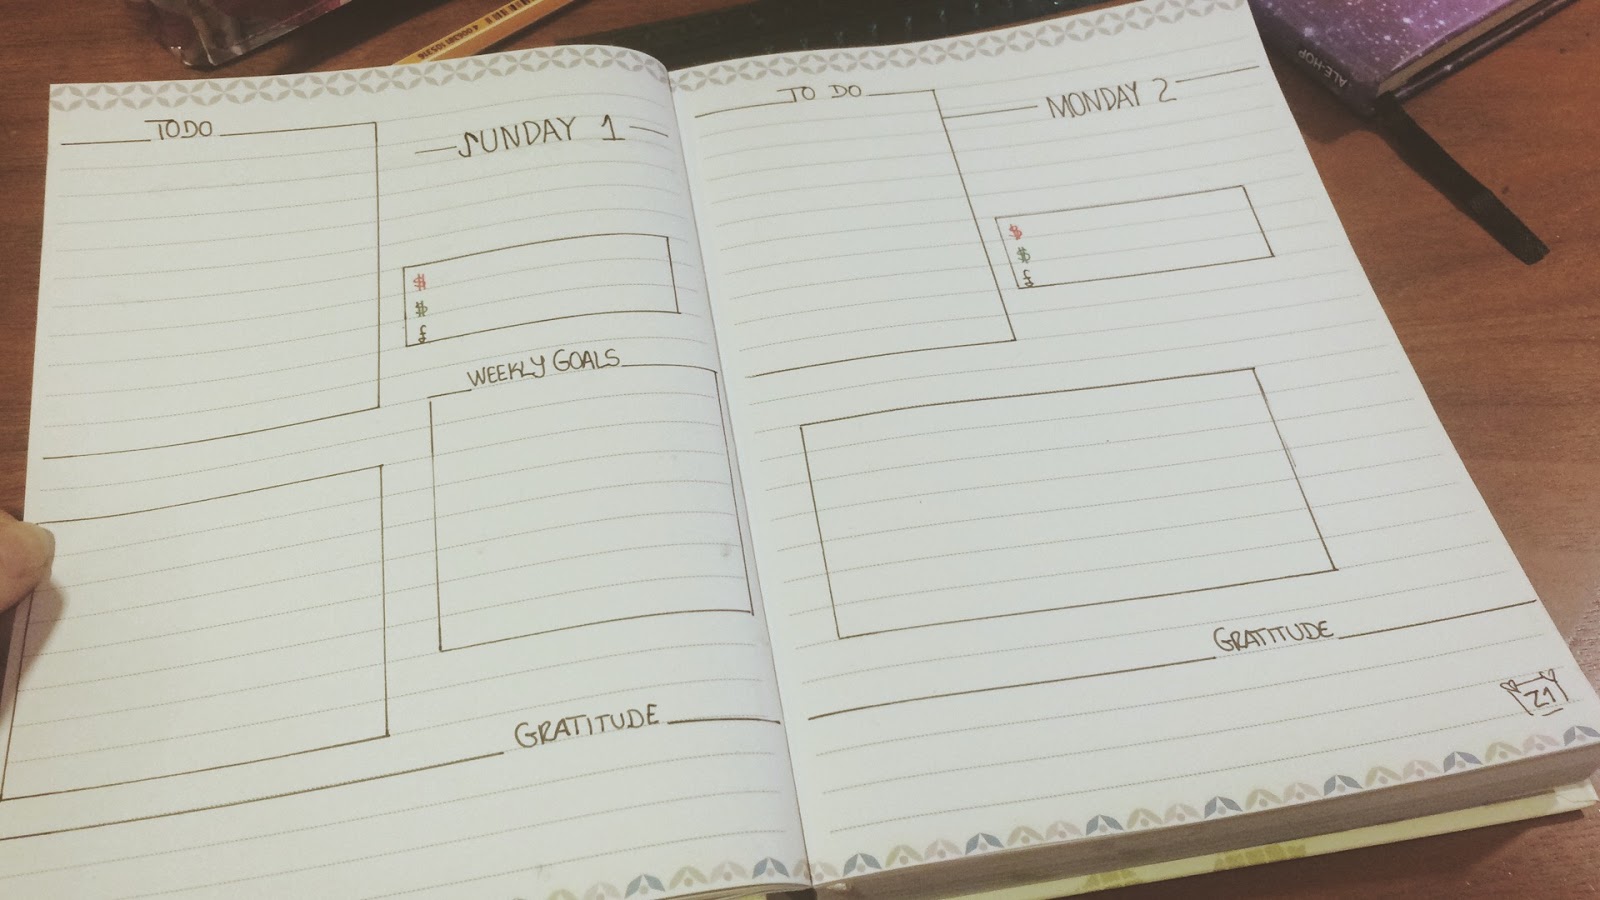 TODO
SUNDAY 1
$
$
£
WEEKLY GOALS
GRATITUDE
TO DO
MONDAY 2
$
$
£
GRATITUDE
21
ALE-HOP